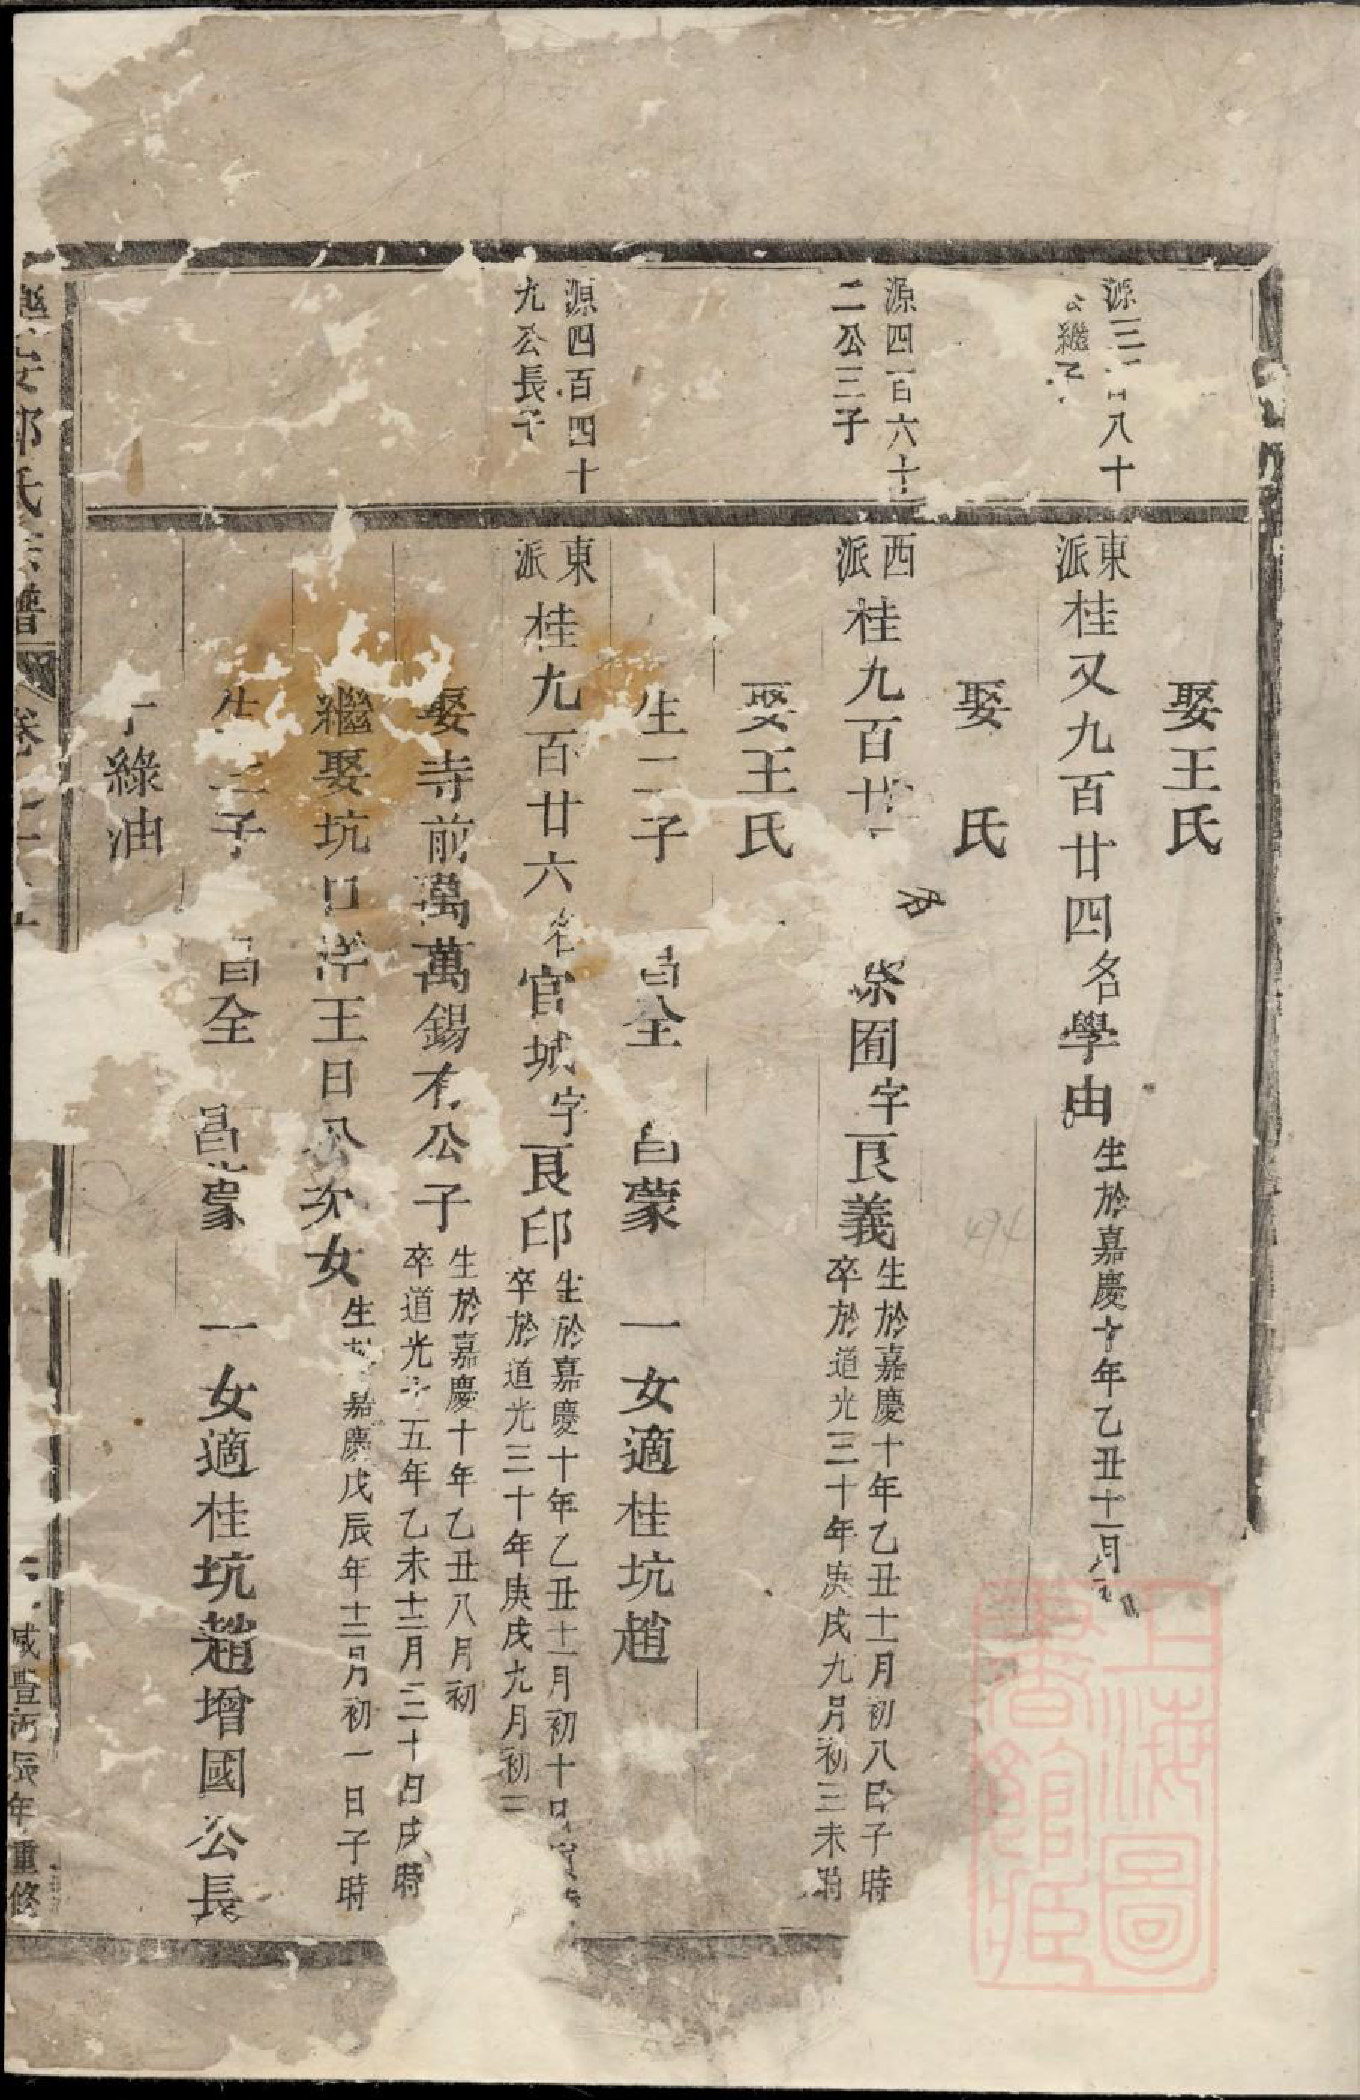 娶王氏
源三百八十
繼子
東派桂又九百廿四名學由
生於嘉慶十年乙丑十一月
娶 氏
源四百六十
二公三子
西派桂九百廿 名崇囿字良義
生於嘉慶十年乙丑十一月初八日子時
卒於道光三十年庚戌九月初三未時
娶王氏
生二子 昌全 昌蒙 一女適桂坑趙
源四百四十
九公長子
東派桂九百廿六名官城字良印
生於嘉慶十年乙丑十一月初十日
卒於道光三十年庚戌九月初三
娶寺前萬萬錫有公子
生於嘉慶十年乙丑八月初
卒道光十五年乙未十二月二十日戌時
繼娶坑口洋王日公次女
生於嘉慶戊辰年十二月初一日子時
生二子 昌全 昌蒙 一女適桂坑趙增國公長
子綠油
樂安 氏宗譜 卷
咸豐丙辰年重修
上海圖書館藏